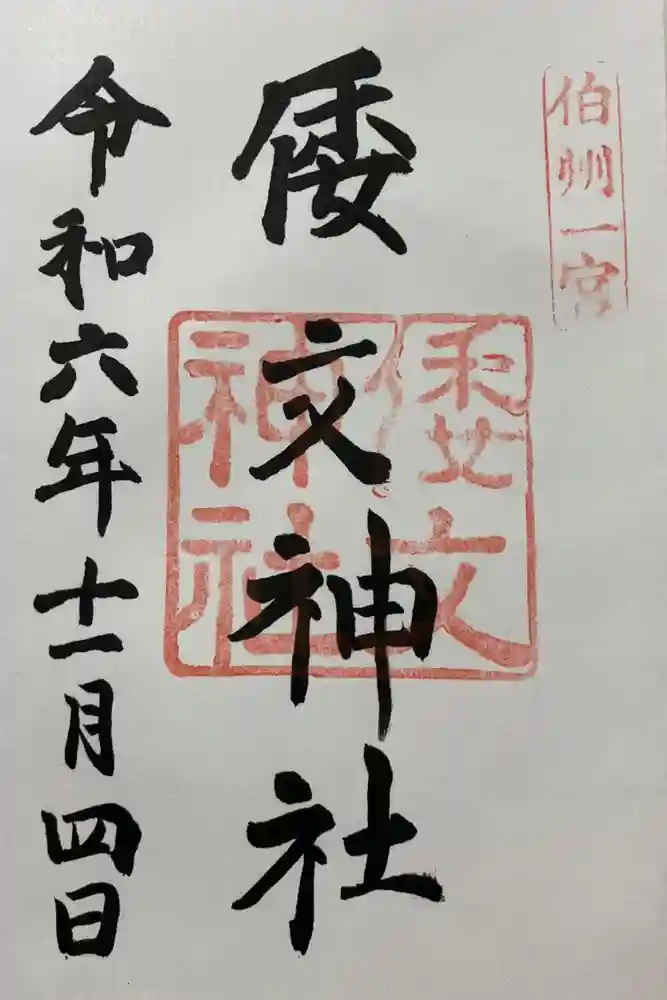 伯州一宮
倭文神社
倭文神社
令和六年十一月四日